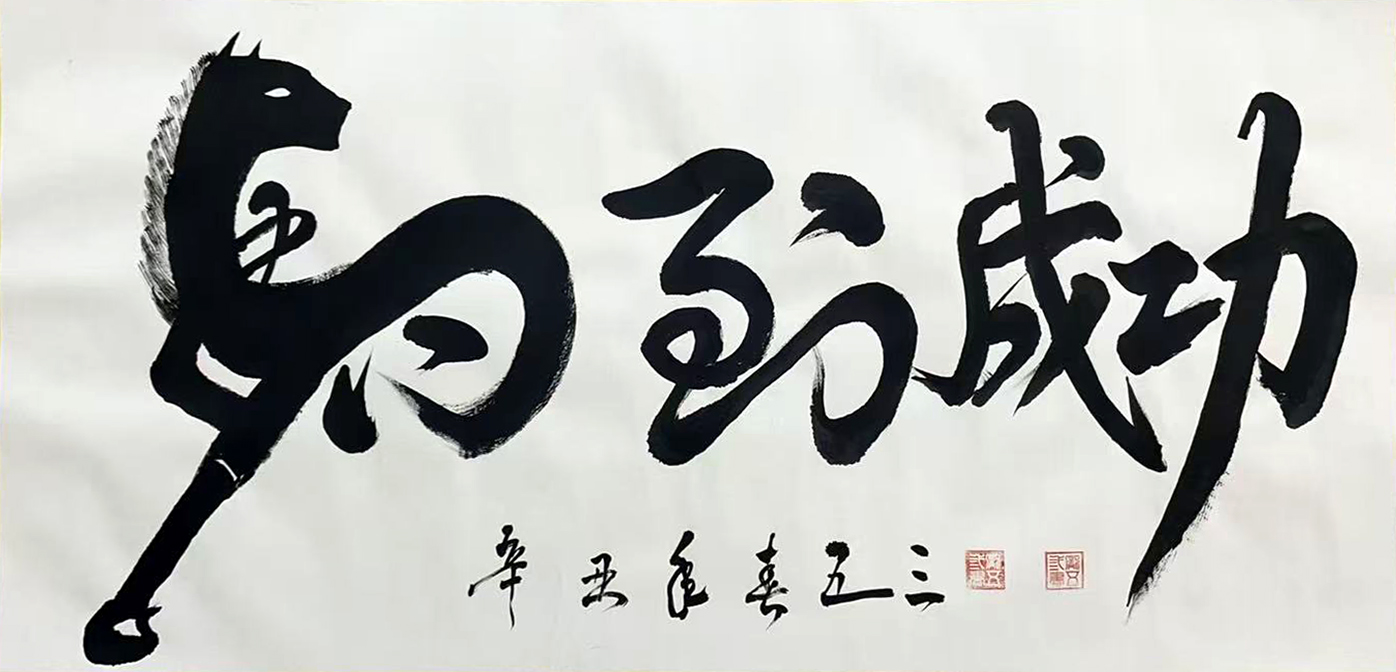 馬到成功
辛丑年春 三